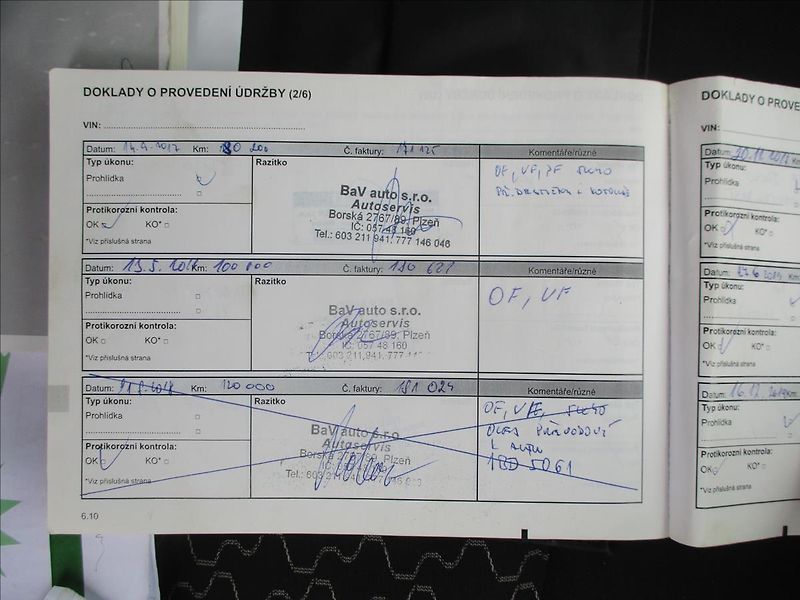 DOKLADY O PROVEDENÍ ÚDRŽBY (2/6)
VIN:
Datum: Km: 80 200 Č. faktury: 171 125 Komentáře/různé
Typ úkonu: Razítko
Prohlídka
OF, VF, PF
BaV auto s.r.o.
Autoservis
Borská 2767/89, Plzeň
IČ: 057 48 160
Tel.: 603 211 941, 777 146 046
Protikorozní kontrola:
OK KO*
*Viz příslušná strana
Datum: Km: 100 000 Č. faktury: 180 627 Komentáře/různé
Typ úkonu: Razítko
Prohlídka
OF, VF
BaV auto s.r.o.
Autoservis
Borská 2767/89, Plzeň
IČ: 057 48 160
Tel.: 603 211 941, 777
Protikorozní kontrola:
OK KO*
*Viz příslušná strana
Datum: Km: 120 000 Č. faktury: 181 024 Komentáře/různé
Typ úkonu: Razítko
Prohlídka
OF, VF,
BaV auto s.r.o.
Autoservis
Borská 2767/89, Plzeň
IČ: 057 48 160
Tel.: 603 211 941, 777 146
Protikorozní kontrola:
OK KO*
*Viz příslušná strana
180 5061
6.10
DOKLADY O PROVE
VIN:
Datum: Km:
Typ úkonu:
Prohlídka
Protikorozní kontrola:
OK KO*
*Viz příslušná strana
Datum: Km:
Typ úkonu:
Prohlídka
Protikorozní kontrola:
OK KO*
*Viz příslušná strana
Datum: Km:
Typ úkonu:
Prohlídka
Protikorozní kontrola:
OK KO*
*Viz příslušná strana